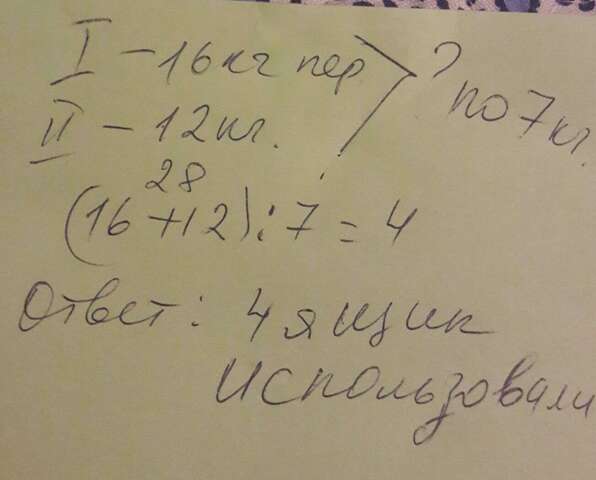 I – 16 кг пер ?
II – 12 кг. по 7 кг.
28
(16 + 12) : 7 = 4
Ответ: 4 ящик
использовали